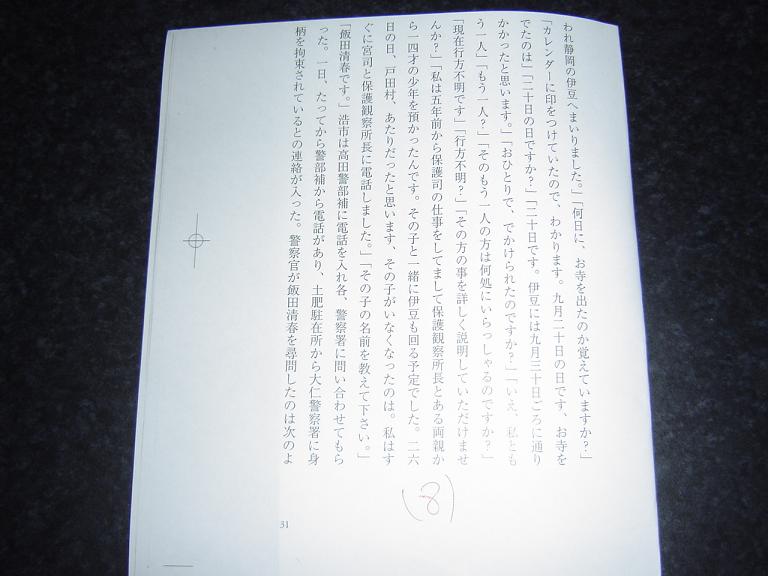 われ静岡の伊豆へまいりました。」「何日に、お寺を出たのか覚えていますか？」
「カレンダーに印をつけていたので、わかります。九月二十日の日です、お寺を
でたのは」「二十日の日ですか？」「二十日です。伊豆には九月三十日ごろに通り
かかったと思います。」「おひとりで、でかけられたのですか？」「いえ、私とも
う一人」「もう一人？」「そのもう一人の方は何処にいらっしゃるのですか？」
「現在行方不明です」「行方不明？」「その方の事を詳しく説明していただけませ
んか？」「私は五年前から保護司の仕事をしてまして保護観察所長とある両親か
ら一四才の少年を預かったんです。その子と一緒に伊豆も回る予定でした。二六
日の日、戸田村、あたりだったと思います、その子がいなくなったのは。私はす
ぐに宮司と保護観察所長に電話しました。」「その子の名前を教えて下さい。」
「飯田清春です。」浩市は高田警部補に電話を入れ各、警察署に問い合わせてもら
った。一日、たってから警部補から電話があり、土肥駐在所から大仁警察署に身
柄を拘束されているとの連絡が入った。警察官が飯田清春を尋問したのは次のよ
(8)
31